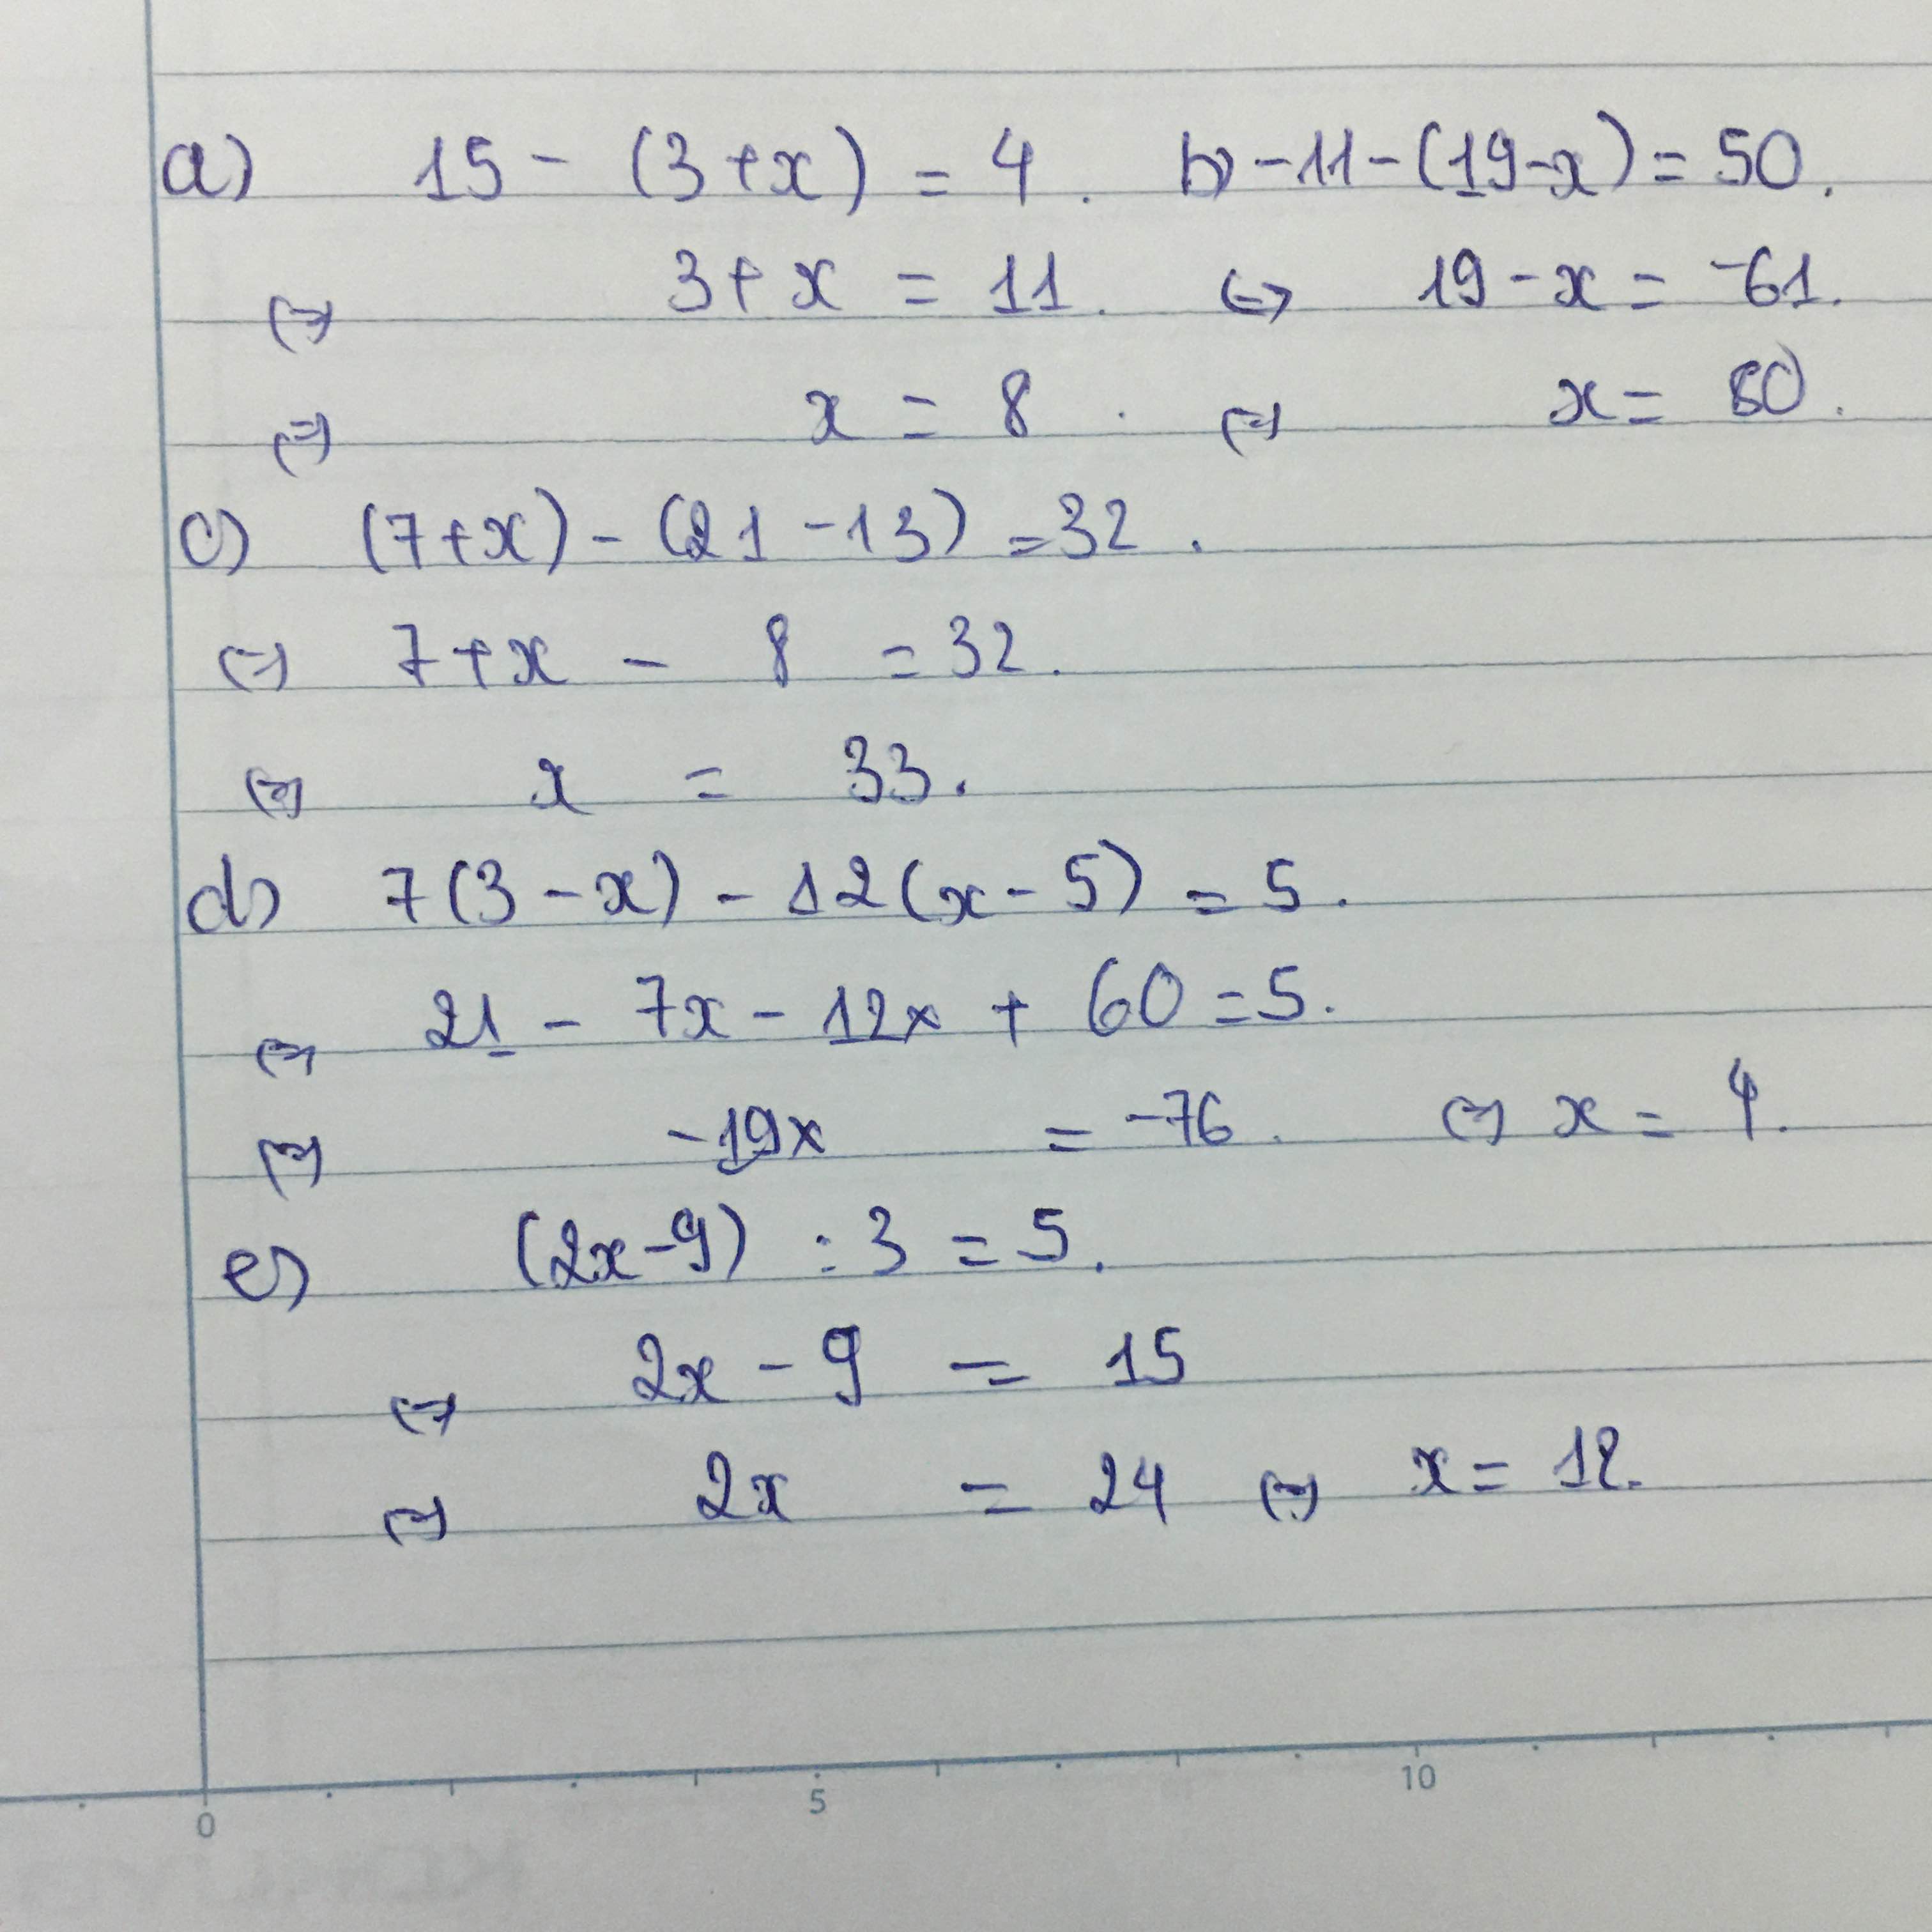 a) 15 - (3 + x) = 4. b) -11 - (19 - x) = 50.
⇔ 3 + x = 11. ⇔ 19 - x = -61.
⇔ x = 8. ⇔ x = 80.
c) (7 + x) - (21 - 13) = 32.
⇔ 7 + x - 8 = 32.
⇔ x = 33.
d) 7(3 - x) - 12(x - 5) = 5.
⇔ 21 - 7x - 12x + 60 = 5.
⇔ -19x = -76. ⇔ x = 4.
e) (2x - 9) : 3 = 5.
⇔ 2x - 9 = 15
⇔ 2x = 24 ⇔ x = 12.
0 5 10